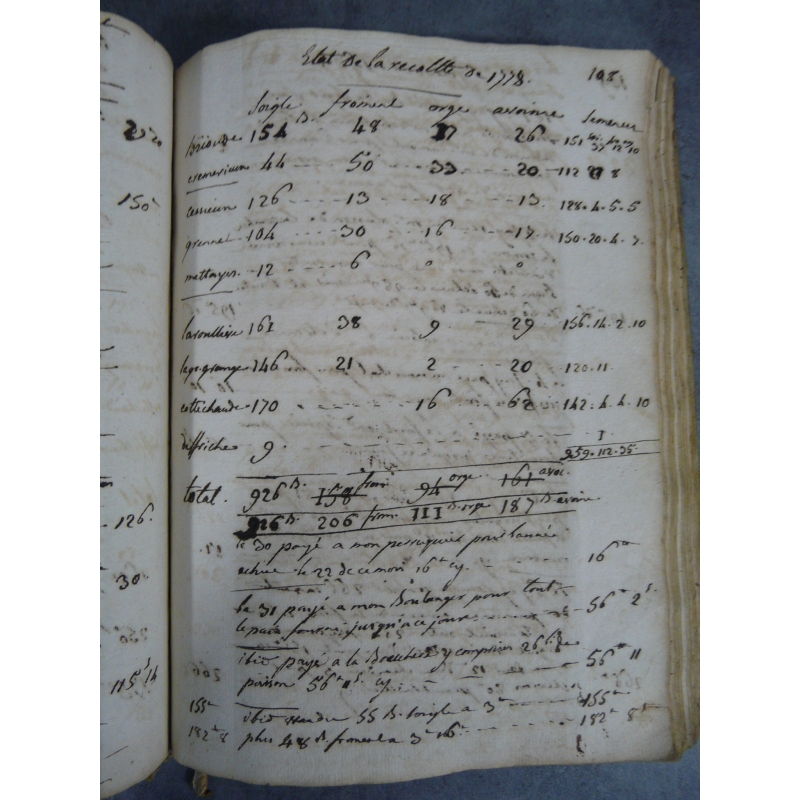 20
150
126
30
115 14
Etat de la recolte de 1778. 108.
Soigle froment orge avoinne Semeneur
brioude 154 B. 48 17 26 151
44 50 33 20 112 8
cessieux 126 13 18 13 128. 4. 5. 5
grennet 104 30 16 17 150. 20. 4. 7
mettayer. 12 6 0 0
laroullière 161 38 9 29 156. 14. 2. 10
lagrange 146 21 2 20 120. 11.
cottechaude 170 16 62 142. 4. 4. 10
deffriche 9. 1
959. 112. 35
total. 926 B. 158 from 94 orge 161 avoi.
926 B. 206 from 111 B. orge 187 B. avoine
le 30 payé a mon perruquier pour l'année
echue le 22 de ce mois 16 cy. 16
le 31 payé a mon Boulanger pour tout
le pain fourni jusqu'a ce jour 56 2 s.
ibid payé a la Bouchere y compris 26 de
poisson 56 11 s. cy. 56 11
155 ibid vendu 55 B. soigle a 3 155
182 8 plus 48 B. froment a 3 16 182 8